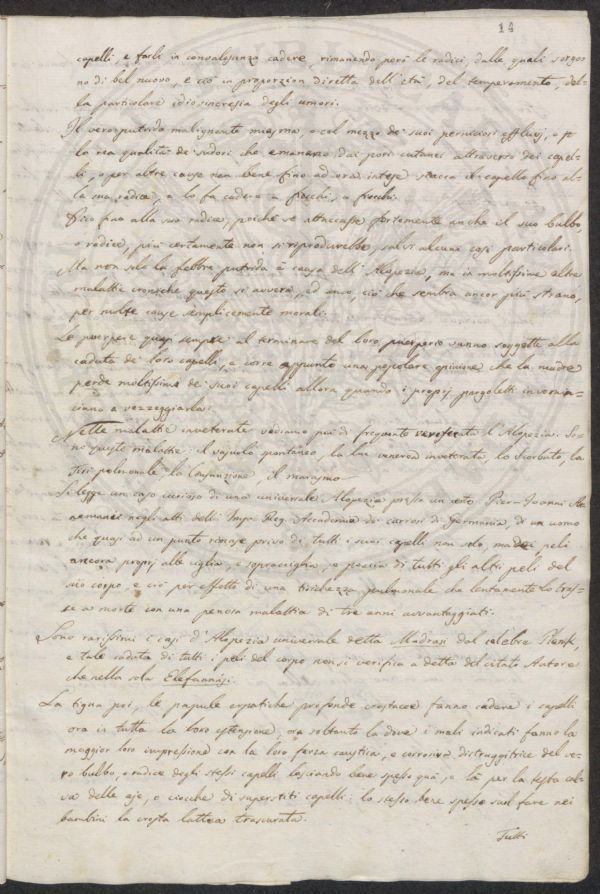 14
capelli, e farli in convalescenza cadere, rimanendo però le radici, dalle quali sorgo=
no di bel nuovo, e ciò in proporzion diretta dell'età, del temperamento, del=
la particolare idiosincresia degli umori.
Il vero putrido malignante miasma, o col mezzo de' suoi perniciosi effluvj, o p
la rea qualità de' sudori che emanano dai pori cutanei attraverso dei capel=
li, o per altre cause non bene fino ad ora intese stacca il capello fino al=
la sua radice, e lo fa cadere a fiocchi, a fiocchi.
Dico fino alla sua radice, poiché se attaccasse fortemente anche il suo bulbo,
o radice, più certamente non si riprodurrebbe, salvi alcuni casi particolari.
Ma non solo la febbre putrida è causa dell'Alopezia, ma in moltissime altre
malattie croniche questo si avvera, ed anco, ciò che sembra ancor più strano,
per molte cause semplicemente morali.
Le puerpere quasi sempre al terminare del loro puerperio vanno soggette alla
caduta de' loro capelli, e corre appunto una popolare opinione che la madre
perde moltissimi de' suoi capelli allora quando i proprj pargoletti incomin=
ciano a vezzeggiarla.
Nelle malattie inveterate vediamo più di frequente verificata l'Alopezia. So=
no queste malattie: il vajuolo spontaneo, la lue venerea inveterata, lo scorbuto, la
Tisi polmonale, la Consunzione, il marasmo.
Si legge un caso curioso di una universale Alopezia presso un certo Pier-Joanni
negli atti dell'Imp. Reg. Accademia di curiosi di Germania, di un uomo
che quasi ad un punto rimase privo di tutti i suoi capelli non solo, ma dei peli
ancora proprj alle ciglia, e sopracciglia, e poscia di tutti gli altri peli del
suo corpo, e ciò per effetto di una tisichezza pulmonale che lentamente lo tras=
se a morte con una penosa malattia di tre anni avvantaggiati.
Sono rarissimi i casi d'Alopezia universale detta Madrosi dal celebre Plenk,
e tale caduta di tutti i peli del corpo non si verifica a detta del citato Autore
che nella sola Elefantiasi.
La tigna poi, le papule erpetiche profonde crostacee fanno cadere i capelli
ora in tutta la loro estensione, ora soltanto la dove i mali indicati fanno la
maggior loro impressione con la loro forza caustica, e corrosiva distruggitrice del ve=
ro bulbo, o radice degli stessi capelli lasciando bene spesso quà, e là per la testa cal=
va delle aje, o ciocche di superstiti capelli: lo stesso bene spesso suol fare nei
bambini la crosta lattea trascurata.
Tutti